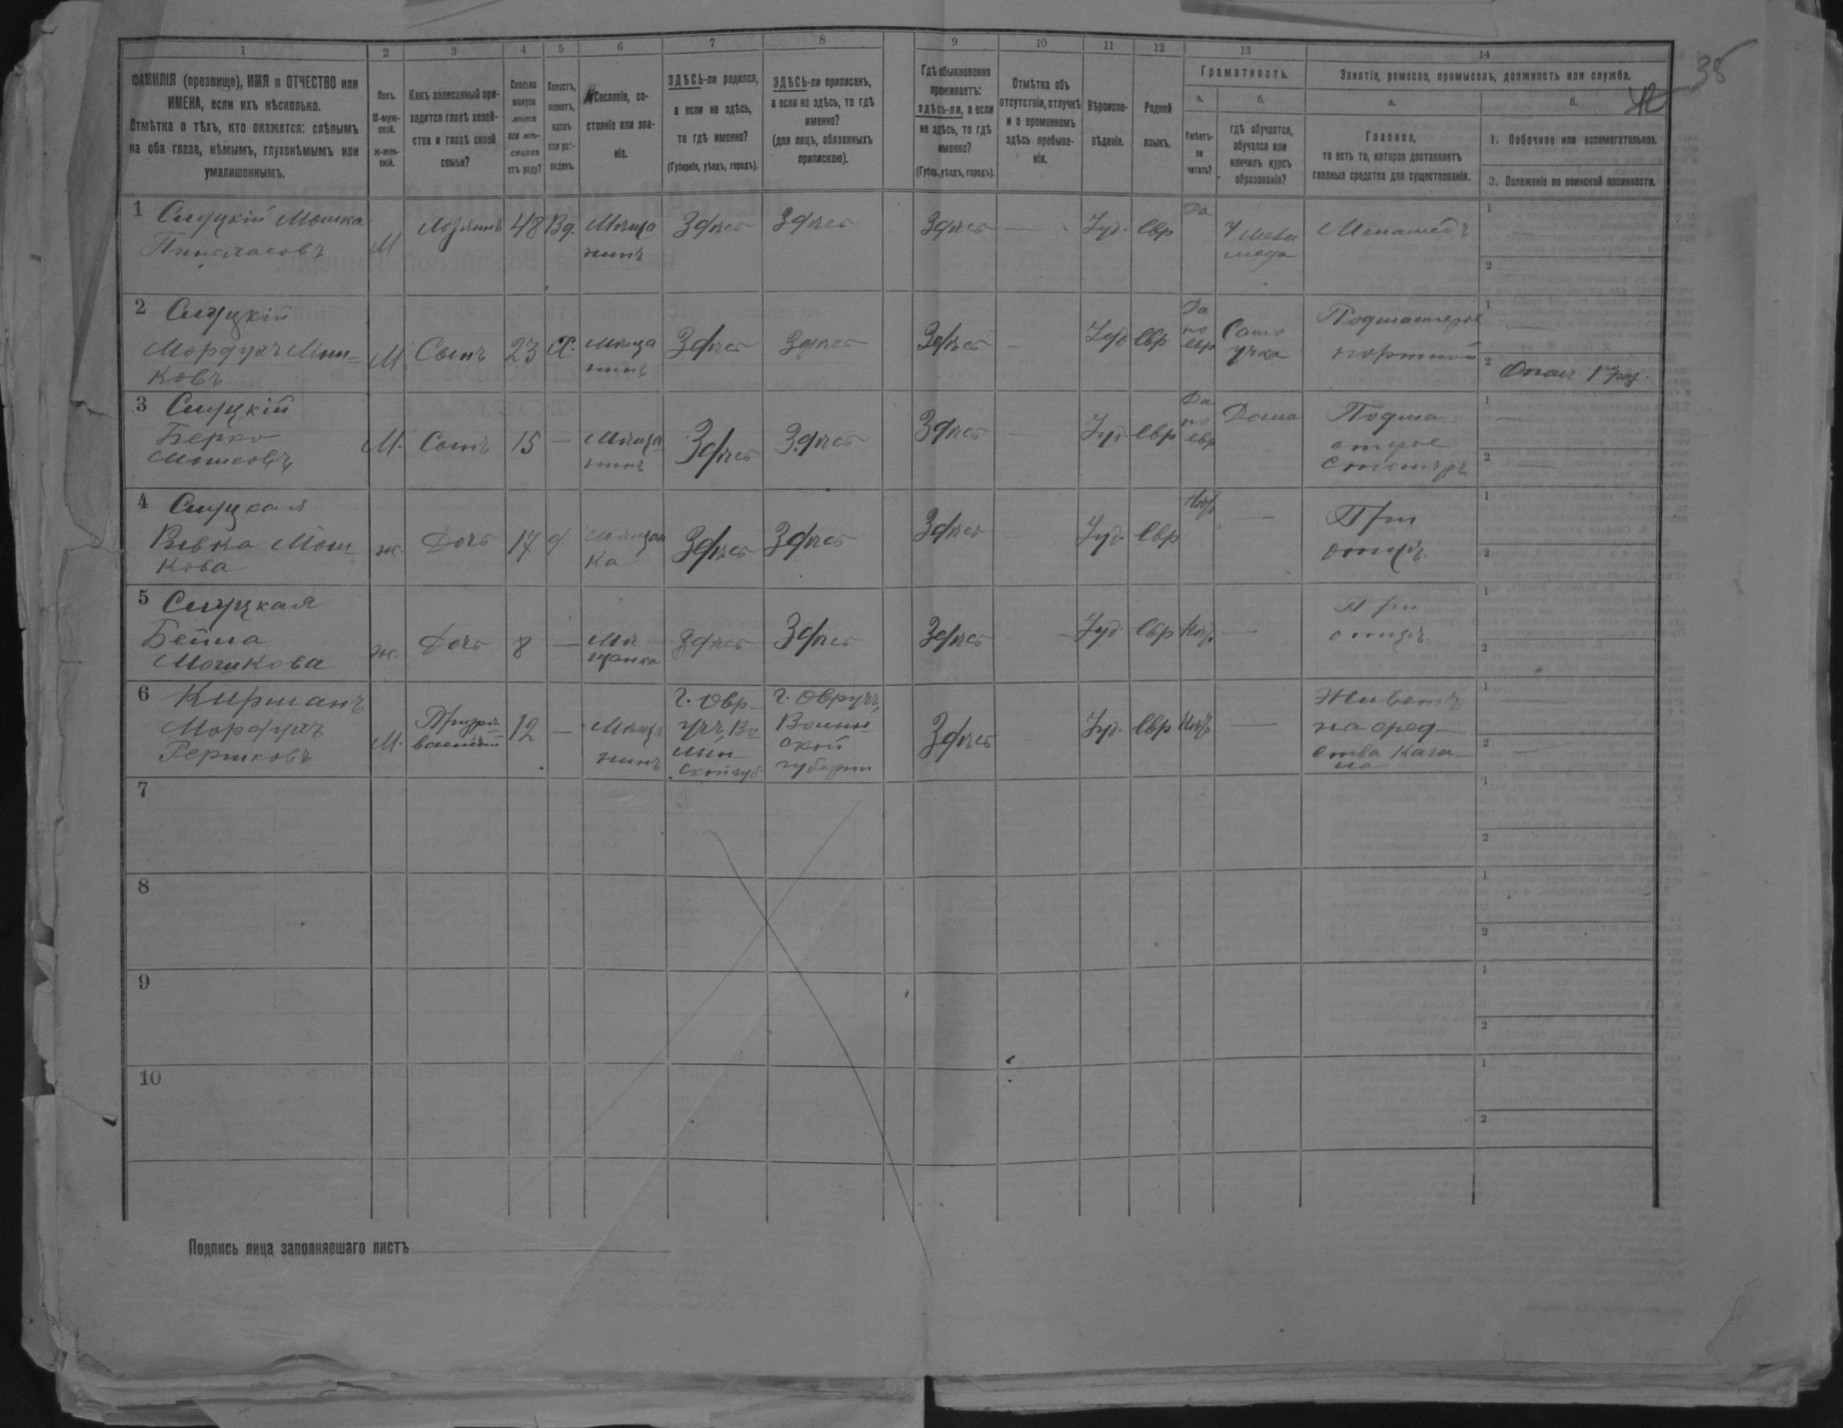 38
1 2 3 4 5 6 7 8 9 10 11 12 13 14
ФАМИЛІЯ (прозвище), ИМЯ и ОТЧЕСТВО или
ИМЕНА, если ихъ нѣсколько.
Отмѣтка о тѣхъ, кто окажется: слѣпымъ
на оба глаза, нѣмымъ, глухонѣмымъ или
умалишеннымъ.
Полъ.
М-муж-
ской.
Ж-жен-
скій.
Какъ записанный при-
ходится главѣ хозяй-
ства и главѣ своей
семьи?
Сколько
минуло
лѣтъ
или мѣ-
сяцевъ
отъ роду?
Холостъ,
женатъ,
вдовъ
или раз-
веденъ.
Сословіе, со-
стояніе или зва-
ніе.
ЗДѢСЬ-ли родился,
а если не здѣсь,
то гдѣ именно?
(Губернія, уѣздъ, городъ).
ЗДѢСЬ-ли приписанъ,
а если не здѣсь, то гдѣ
именно?
(для лицъ, обязанныхъ
припискою).
Гдѣ обыкновенно
проживаетъ:
здѣсь-ли, а если
не здѣсь, то гдѣ
именно?
(Губер., уѣздъ, городъ).
Отмѣтка объ
отсутствіи, отлучкѣ
и о временномъ
здѣсь пребыва-
ніи.
Вѣроиспо-
вѣданіе.
Родной
языкъ.
Грамотность.
а. б.
Умѣетъ-
ли
читать?
гдѣ обучается,
обучался или
кончилъ курсъ
образованія?
Занятіе, ремесло, промыселъ, должность или служба.
а. б.
Главное,
то есть то, которое доставляетъ
главныя средства для существованія.
1. Побочное или вспомогательное.
2. Положеніе по воинской повинности.
1 Слуцкій Мошка
Пинхасовъ
М
Хозяинъ 48 Вд. Мѣща
нинъ
Здѣсь Здѣсь Здѣсь — Іуд. Евр Да
У мела
меда
Меламедъ
1 —
2
2 Слуцкій
Мордухъ Мош-
ковъ
М Сынъ 23 Х. Мѣща
нинъ
Здѣсь Здѣсь Здѣсь — Іуд Евр
Да
по
евр
Само
учка
Подмастерье
портной
1 —
2 Ополч. 1 раз.
3 Слуцкій
Берко
Мошковъ
М. Сынъ 15 — Мѣща
нинъ
Здѣсь Здѣсь Здѣсь — Іуд Евр
Да
по
евр
Дома
Подма
стерье
Столяръ
1 —
2 —
4 Слуцкая
Ривка Мош-
кова
ж. Дочь 17 д. мѣщан
ка
Здѣсь Здѣсь Здѣсь — Іуд. Евр Нѣтъ —
При
отцѣ
1
2
5 Слуцкая
Бейла
Мошкова
ж. Дочь 8 — Мѣ
щанка
Здѣсь Здѣсь Здѣсь — Іуд Евр Нѣтъ —
При
отцѣ
1
2
6 Кирманъ
Мордухъ
Гершковъ
М. Призрѣ
ваемый
12 — Мѣща
нинъ
г. Овр-
учъ Во
лын
ской губ.
г. Овручъ,
Волын
ской
губерніи
Здѣсь Іуд. Евр Нѣтъ —
Живетъ
на сред-
ства Кага-
ла
1 —
2 —
7
1
2
8
1
2
9
1
2
10
1
2
Подпись лица заполнявшаго листъ